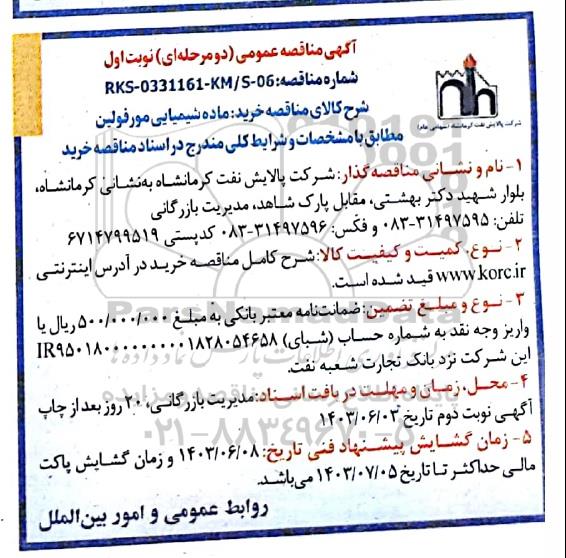 آگهی مناقصه عمومی (دو مرحله‌ای) نوبت اول
شماره مناقصه: RKS-0331161-KM/S-06
شرح کالای مناقصه خرید: ماده شیمیایی مورفولین
مطابق با مشخصات و شرایط کلی مندرج در اسناد مناقصه خرید
شرکت پالایش نفت کرمانشاه (سهامی عام)
۱- نام و نشانی مناقصه‌گذار: شرکت پالایش نفت کرمانشاه به‌نشانی کرمانشاه،
بلوار شهید دکتر بهشتی، مقابل پارک شاهد، مدیریت بازرگانی
تلفن: ۳۱۴۹۷۵۹۵-۰۸۳ و فکس: ۳۱۴۹۷۵۹۶-۰۸۳ کدپستی ۶۷۱۴۷۹۹۵۱۹
۲- نوع، کمیت و کیفیت کالا: شرح کامل مناقصه خرید در آدرس اینترنتی
www.korc.ir قید شده است.
۳- نوع و مبلغ تضمین: ضمانت‌نامه معتبر بانکی به مبلغ ۵۰۰/۰۰۰/۰۰۰ ریال یا
واریز وجه نقد به شماره حساب (شبای) IR۹۵۰۱۸۰۰۰۰۰۰۰۰۰۰۱۸۲۸۰۵۴۶۵۸
این شرکت نزد بانک تجارت شعبه نفت.
۴- محل، زمان و مهلت دریافت اسناد: مدیریت بازرگانی، ۲۰ روز بعد از چاپ
آگهی نوبت دوم تاریخ ۱۴۰۳/۰۶/۰۳
۵- زمان گشایش پیشنهاد فنی تاریخ: ۱۴۰۳/۰۶/۰۸ و زمان گشایش پاکت
مالی حداکثر تا تاریخ ۱۴۰۳/۰۷/۰۵ می‌باشد.
روابط عمومی و امور بین‌الملل
ParsNamadData
۰۲۱-۸۸۳۴۹۶۷۰-۵